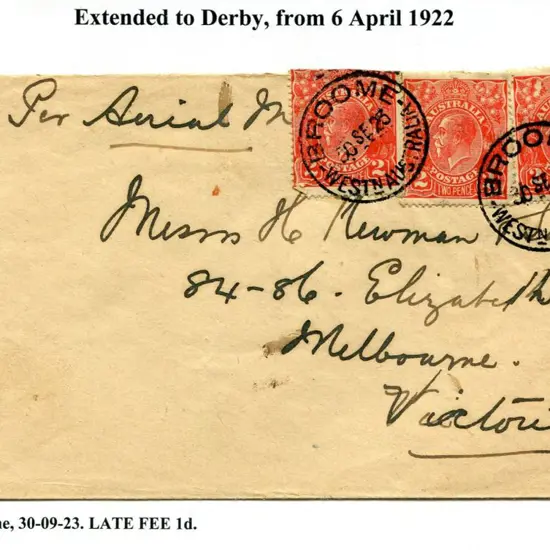 Extended to Derby, from 6 April 1922
Per Aerial M
BROOME
30 SE 23
WESTN AUSTRALIA
AUSTRALIA
2
POSTAGE
TWO PENCE
BROOME
30 SE
WESTN
Messrs H Newman
84-86. Elizabeth
Melbourne.
Victori
ne, 30-09-23. LATE FEE 1d.